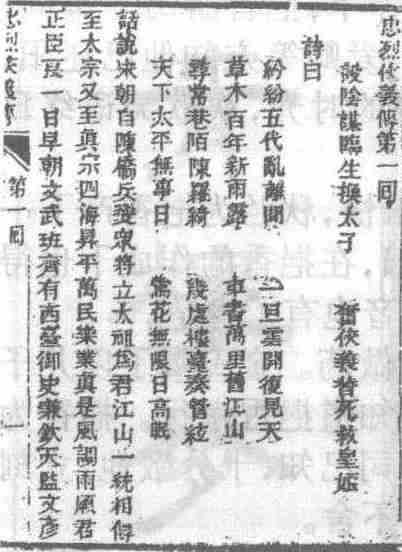 忠烈俠義傳第一囘
設陰謀臨生換太子　奮俠義替死救皇娘
詩曰
紛紛五代亂離間　一旦雲開復見天
草木百年新雨露　車書萬里舊江山
尋常巷陌陳羅綺　幾處樓臺奏管絃
天下太平無事日　鶯花無限日高眠
話說宋朝自陳橋兵變衆將立太祖爲君江山一統相傳
至太宗又至眞宗四海昇平萬民樂業眞是風調雨順君
正臣良一日早朝文武班齊有西臺御史兼欽天監文彥
忠烈俠義傳　第一囘　一